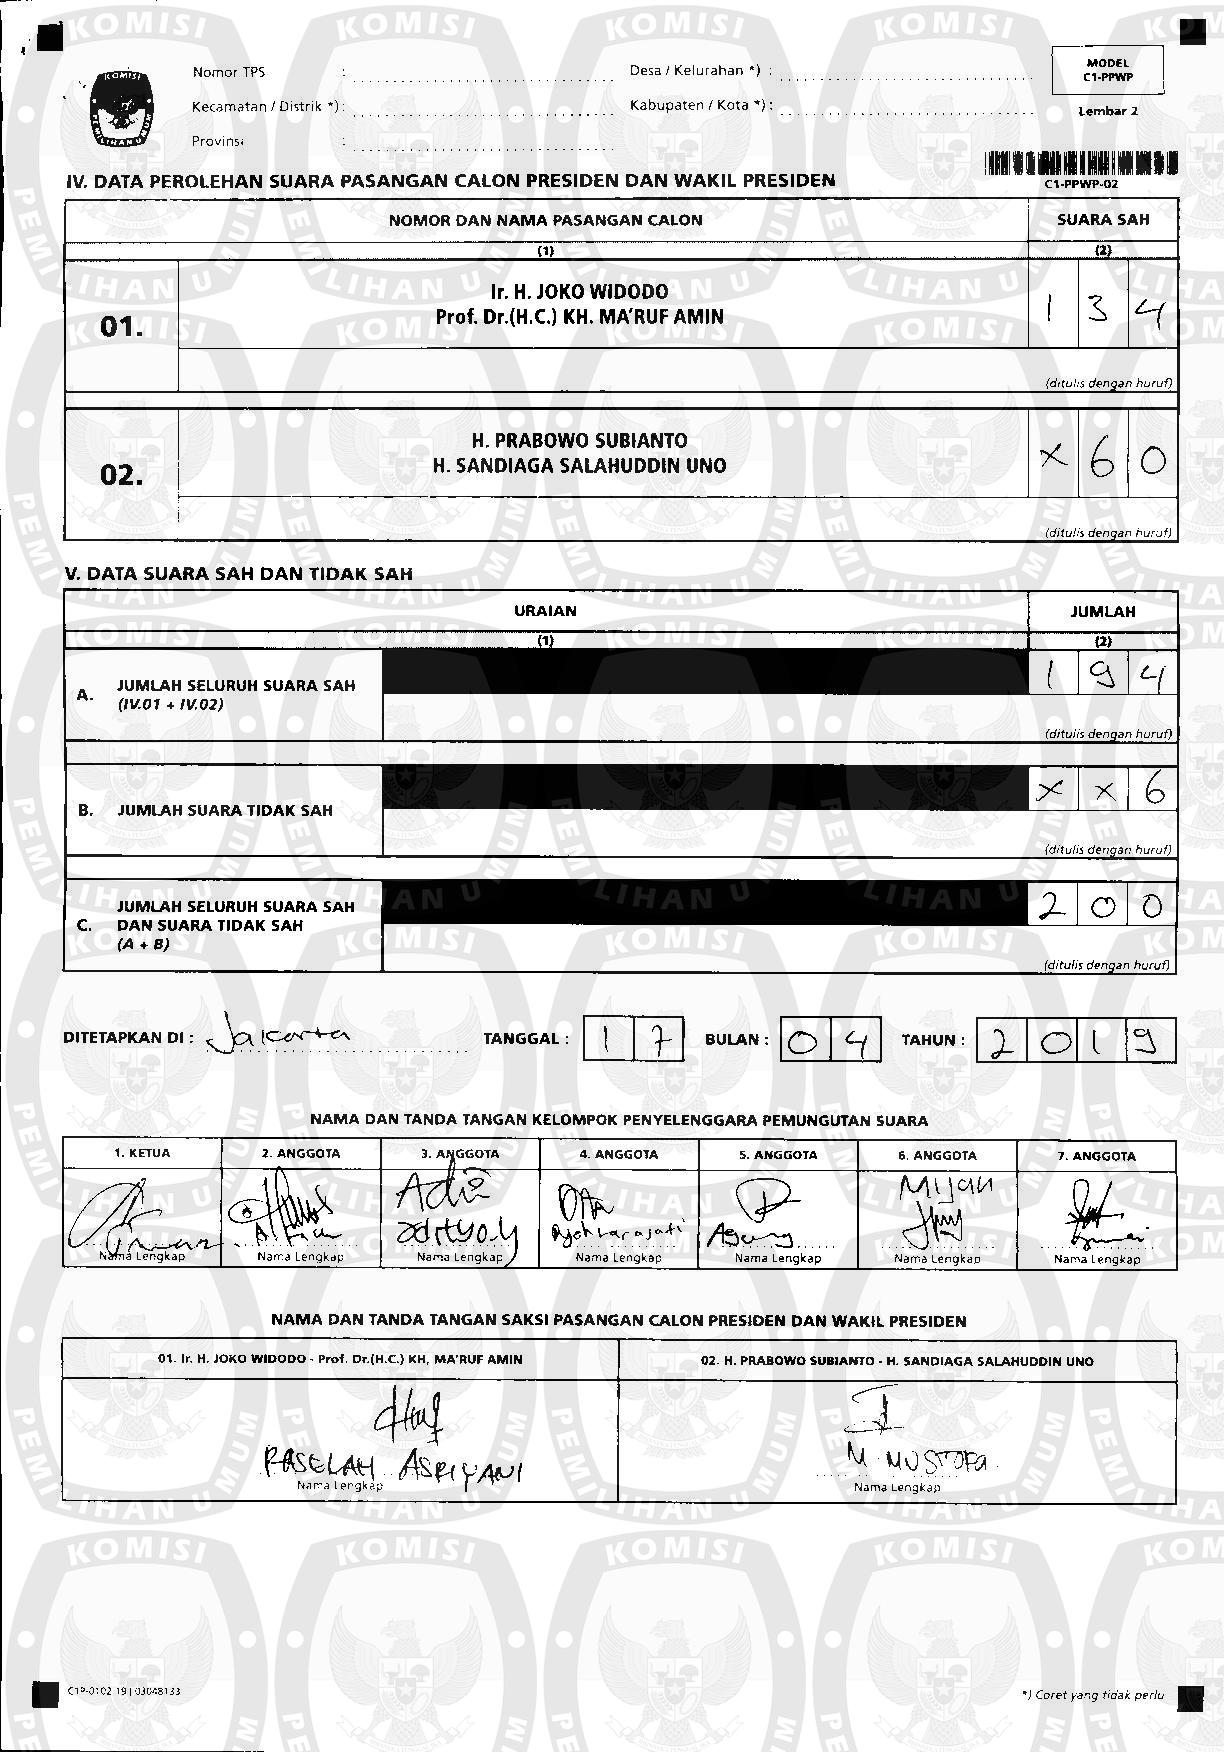 MODEL
C1-PPWP
Nomor TPS :
Desa / Kelurahan *) :
Kecamatan / Distrik *) :
Kabupaten / Kota *) :
Lembar 2
Provinsi :
IV. DATA PEROLEHAN SUARA PASANGAN CALON PRESIDEN DAN WAKIL PRESIDEN
C1-PPWP-02
NOMOR DAN NAMA PASANGAN CALON SUARA SAH
(1) (2)
01. Ir. H. JOKO WIDODO
Prof. Dr.(H.C.) KH. MA'RUF AMIN
1 3 4
(ditulis dengan huruf)
02. H. PRABOWO SUBIANTO
H. SANDIAGA SALAHUDDIN UNO
X 6 0
(ditulis dengan huruf)
V. DATA SUARA SAH DAN TIDAK SAH
URAIAN JUMLAH
(1) (2)
A. JUMLAH SELURUH SUARA SAH
(IV.01 + IV.02)
1 9 4
(ditulis dengan huruf)
B. JUMLAH SUARA TIDAK SAH
X X 6
(ditulis dengan huruf)
C. JUMLAH SELURUH SUARA SAH
DAN SUARA TIDAK SAH
(A + B)
2 0 0
(ditulis dengan huruf)
DITETAPKAN DI : Jakarta TANGGAL : 1 7 BULAN : 0 4 TAHUN : 2 0 1 9
NAMA DAN TANDA TANGAN KELOMPOK PENYELENGGARA PEMUNGUTAN SUARA
1. KETUA 2. ANGGOTA 3. ANGGOTA 4. ANGGOTA 5. ANGGOTA 6. ANGGOTA 7. ANGGOTA
Adi Mijan
adityo.y Agung
Nama Lengkap Nama Lengkap Nama Lengkap Nama Lengkap Nama Lengkap Nama Lengkap Nama Lengkap
NAMA DAN TANDA TANGAN SAKSI PASANGAN CALON PRESIDEN DAN WAKIL PRESIDEN
01. Ir. H. JOKO WIDODO - Prof. Dr.(H.C.) KH. MA'RUF AMIN 02. H. PRABOWO SUBIANTO - H. SANDIAGA SALAHUDDIN UNO
RASELAH ASRIYANI M MUSTOFA
Nama Lengkap Nama Lengkap
C1P-0102 19 | 03048133
*) Coret yang tidak perlu